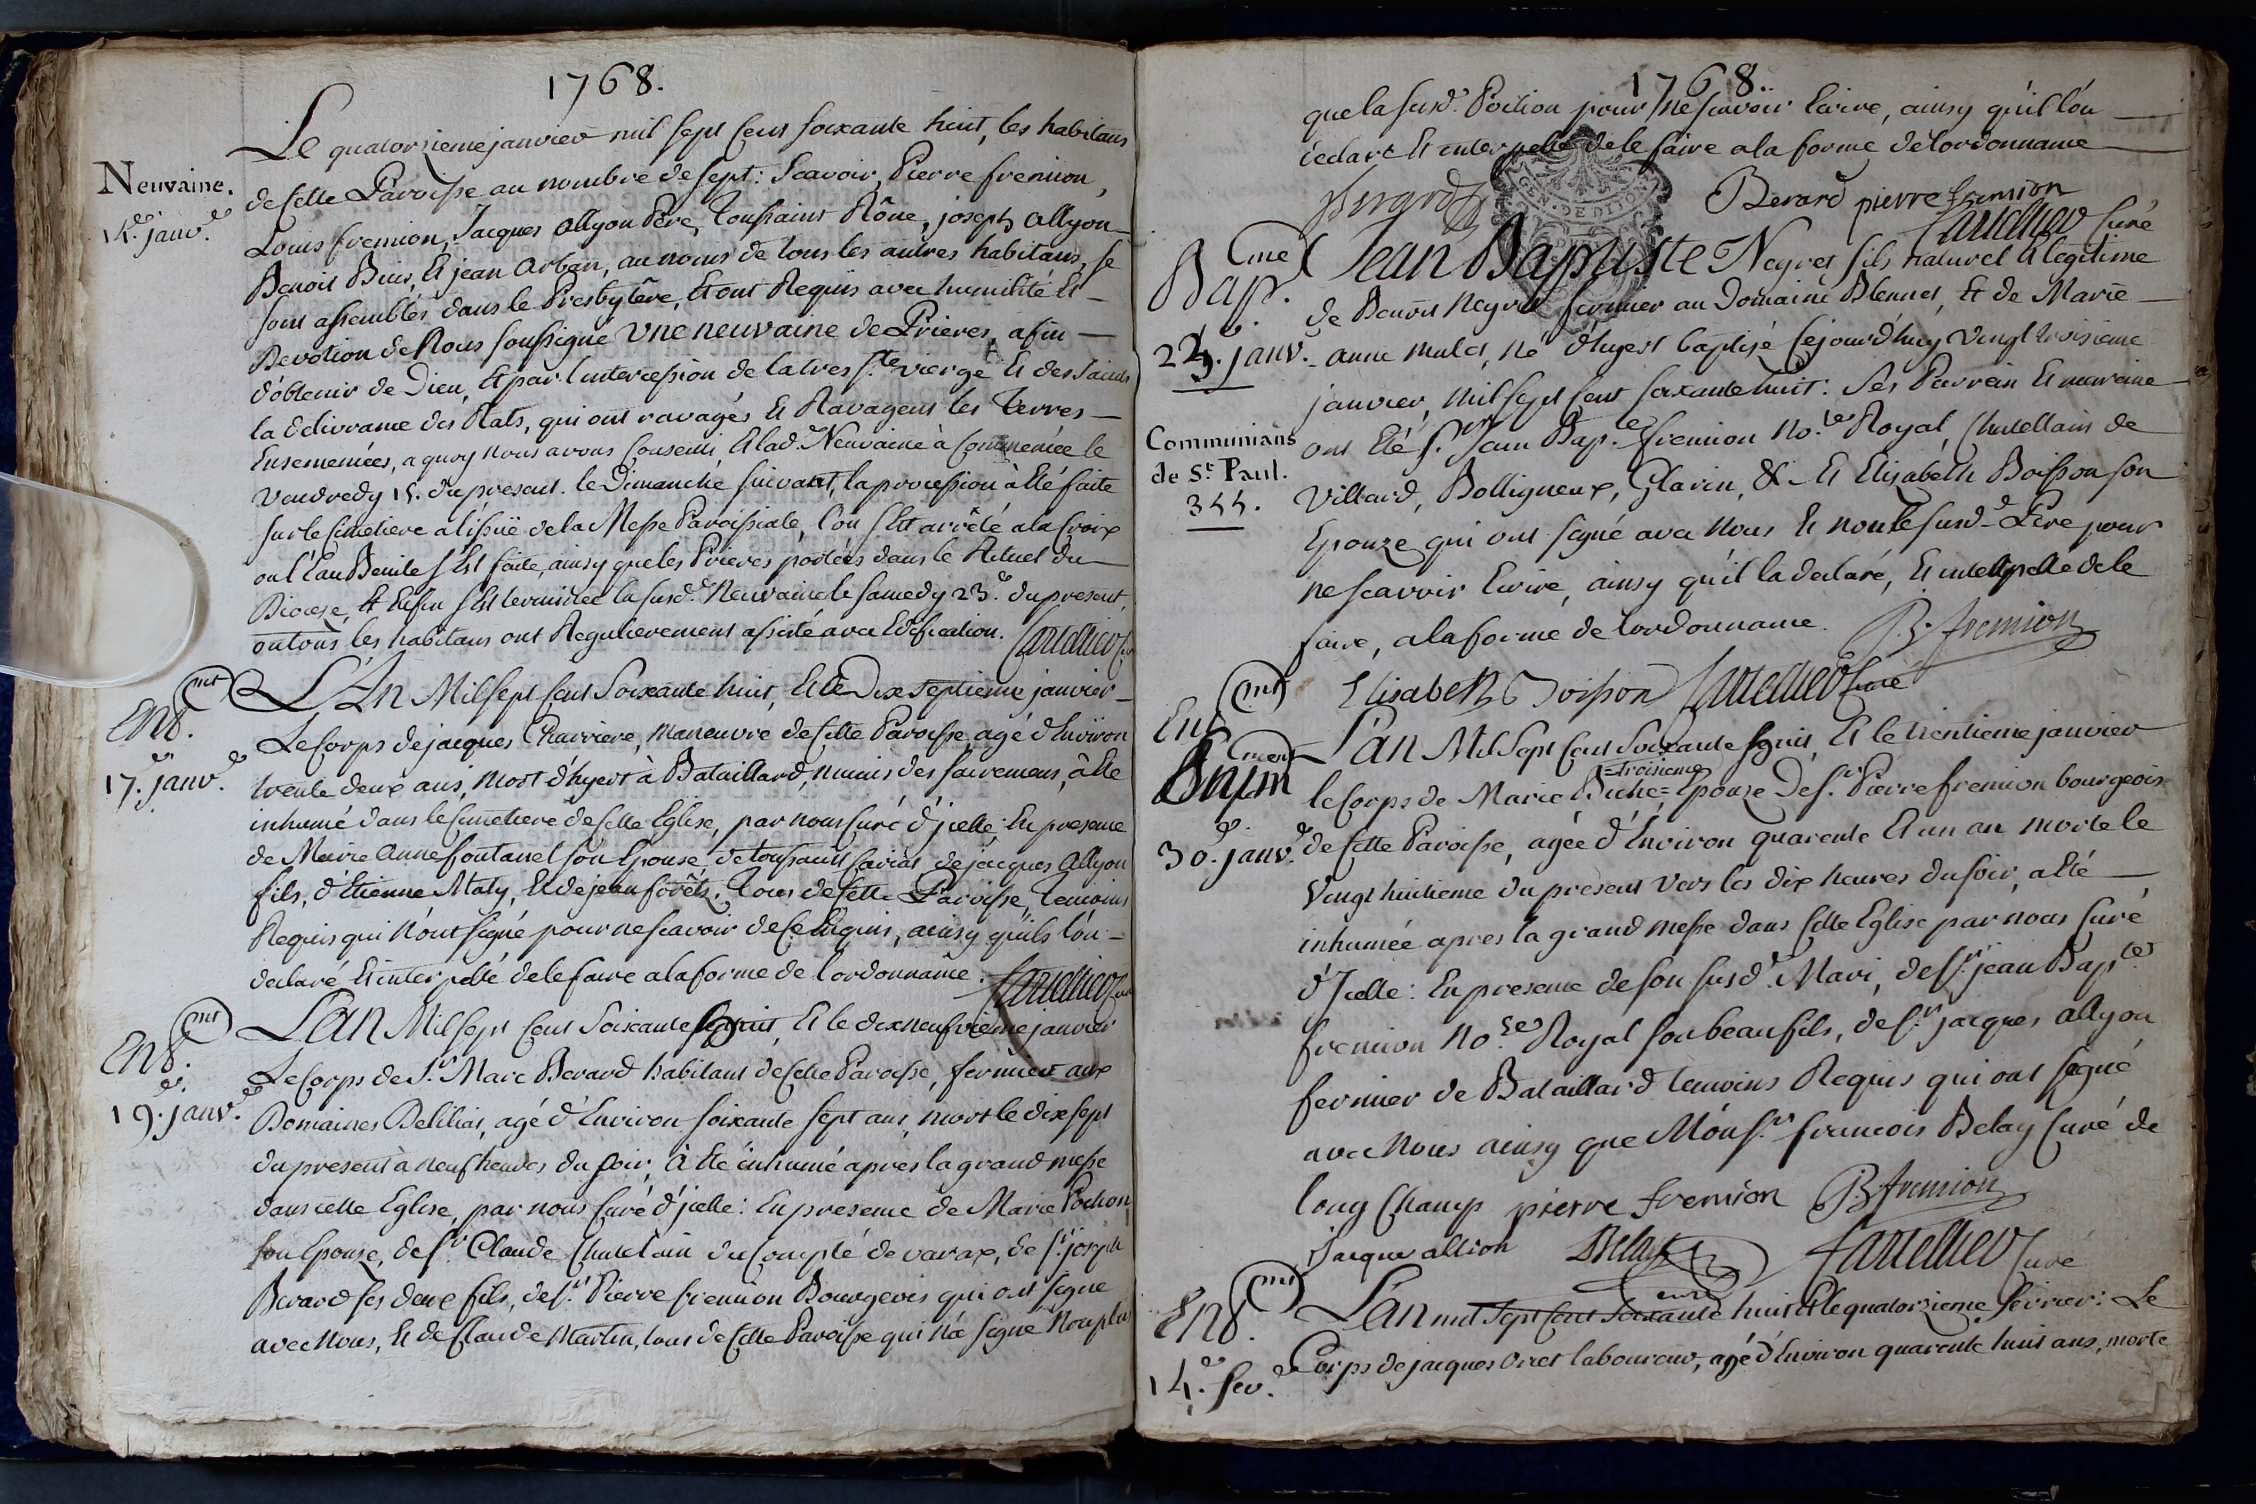 1768.
Le quatorzieme janvier mil sept Cent soixante huit, les habitans
Neuvaine.
de Cette Paroisse au nombre de sept: Scavoir, Pierre fremion,
14.e janv.er
Louis fremion, Jacques Allyon Pere, Toussaint Rône, joseph Allyon
Benoit Buis, Et jean Arban, au noms de tous les autres habitans, se
sont assemblés dans le Presbytêre, Et ont Requis avec humilité Et
Devotion de Nous soussigné Une neuvaine de Prieres, afin
d'obtenir de Dieu, Et par l'intercession de la tres s.te vierge Et des Saints
la delivrance des Rats, qui ont ravagés Et Ravagent les Terres
Ensemencées, a quoy nous avons Consenti, Et lad.e Neuvaine à Commencée le
Vendredy 15. du present. le Dimanche suivant, la procession à Eté faite
sur le Cimetiere a l'issuë de la Messe Paroissiale, l'on s'Est arrêté a la Croix
ou l'Eau Benite s'Est faite, ainsy que les Prieres portées dans le Rituel du
Diocese, Et Enfin s'Est terminée la susd.e Neuvaine le samedy 23.e du present,
ou tous les habitans ont Regulierement assisté avec Edification. Cartellier Curé
Ent.mt
L'An Mil sept Cent Soixante huit, Et le Dix septieme janvier
17.e janv.er
Le Corps de jacques Charriere, Maneuvre de Cette Paroisse, agé d'Environ
trente deux ans, Mort d'hyert à Bataillard, munis des sacremens, à Eté
inhumé dans le Cimetiere de Cette Eglise, par nous Curé d'jcelle: En presence
de Marie Anne fontanel son Epouse, de toussaint Cariat, de jacques Allyon
fils, d'Etienne Maty, Et de jean forêts, Tous de Cette Paroisse, Temoins
Requis qui n'ont signé pour ne scavoir de Ce Enquis, ainsy qu'ils l'on
declaré Et interpellé de le faire a la forme de l'ordonnance. Cartellier Curé
Ent.mt
L'an Mil sept Cent Soixante huit, Et le dixneufvieme janvier
19.e janv.er
Le Corps de S.r Marc Berard habitant de Cette Paroisse, fermier aux
Domaines Delilias, agé d'Environ soixante sept ans, mort le dixsept
du present à neuf heures du soir, à Eté inhumé apres la grand messe
dans cette Eglise, par nous Curé d'jcelle: En presence de Marie Pochon
son Epouse, de s.r Claude Chatelain du Compté de varax, de s.r joseph
Berard ses deux fils, de s.r Pierre fremion Bourgeois qui ont signé
avec Nous, Et de Claude Martin, tous de Cette Paroisse qui n'a signé Non plus
1768
que la susd.e Poition pour ne scavoir Ecrire, ainsy qu'il l'on
declaré Et interpellé de le faire a la forme de l'ordonnance
GEN. DE DIJON
Berard Berard pierre fremion
Cartellier Curé
Bap.me
Jean Baptiste Neyret fils naturel Et legitime
de Benoit Neyret fermier au Domaine Blennet, Et de Marie
23.e janv.
anne Mulet, né d'hyert baptisé Cejourd'huy vingt troisieme
janvier, mil sept Cent soixante huit: Ses Parrein Et mareine
Communians
de St. Paul.
344.
ont Eté s.r Jean Bap.te fremion No.re Royal, Chatellain de
Villard, Bolligneux, Glarin, &. Et Elisabeth Boisson son
Epouze qui ont signé avec Nous Et non le susd.d Pere pour
ne scavoir Ecrire, ainsy qu'il la declaré, Et interpellé de le
faire, a la forme de l'ordonnance. J.B. fremion
Elisabeth Boisson Cartellier Curé
Ent.mt
L'an Mil Sept Cent Soixante huit Et le trentieme janvier
=troisieme
le Corps de Marie Biche= Epouze De s.r Pierre fremion bourgeois
30.e janv.er
de Cette Paroisse, agée d'Environ quarente Et un an morte le
Vingt huitieme du present vers les dix heures du soir, a Eté
inhumée apres la grand messe dans Cette Eglise par nous Curé
d'Jcelle: En presence de son susd.t Mari, de s.r jean Bap.te
fremion No.re Royal son beau fils, de s.r jacques allyon
fermier de Bataillard temoins Requis qui ont signé
avec Nous ainsy que Mons.r francois Belay Curé de
long Champ pierre fremion J.B. fremion
Jacque allion Belay Cartellier Curé
Ent.mt
L'an mil sept Cent soixante huit Et le quatorzieme fevrier: Le
14.e fev.er
Corps de jacques Orset laboureur, agé d'Environ quarente huit ans, morte